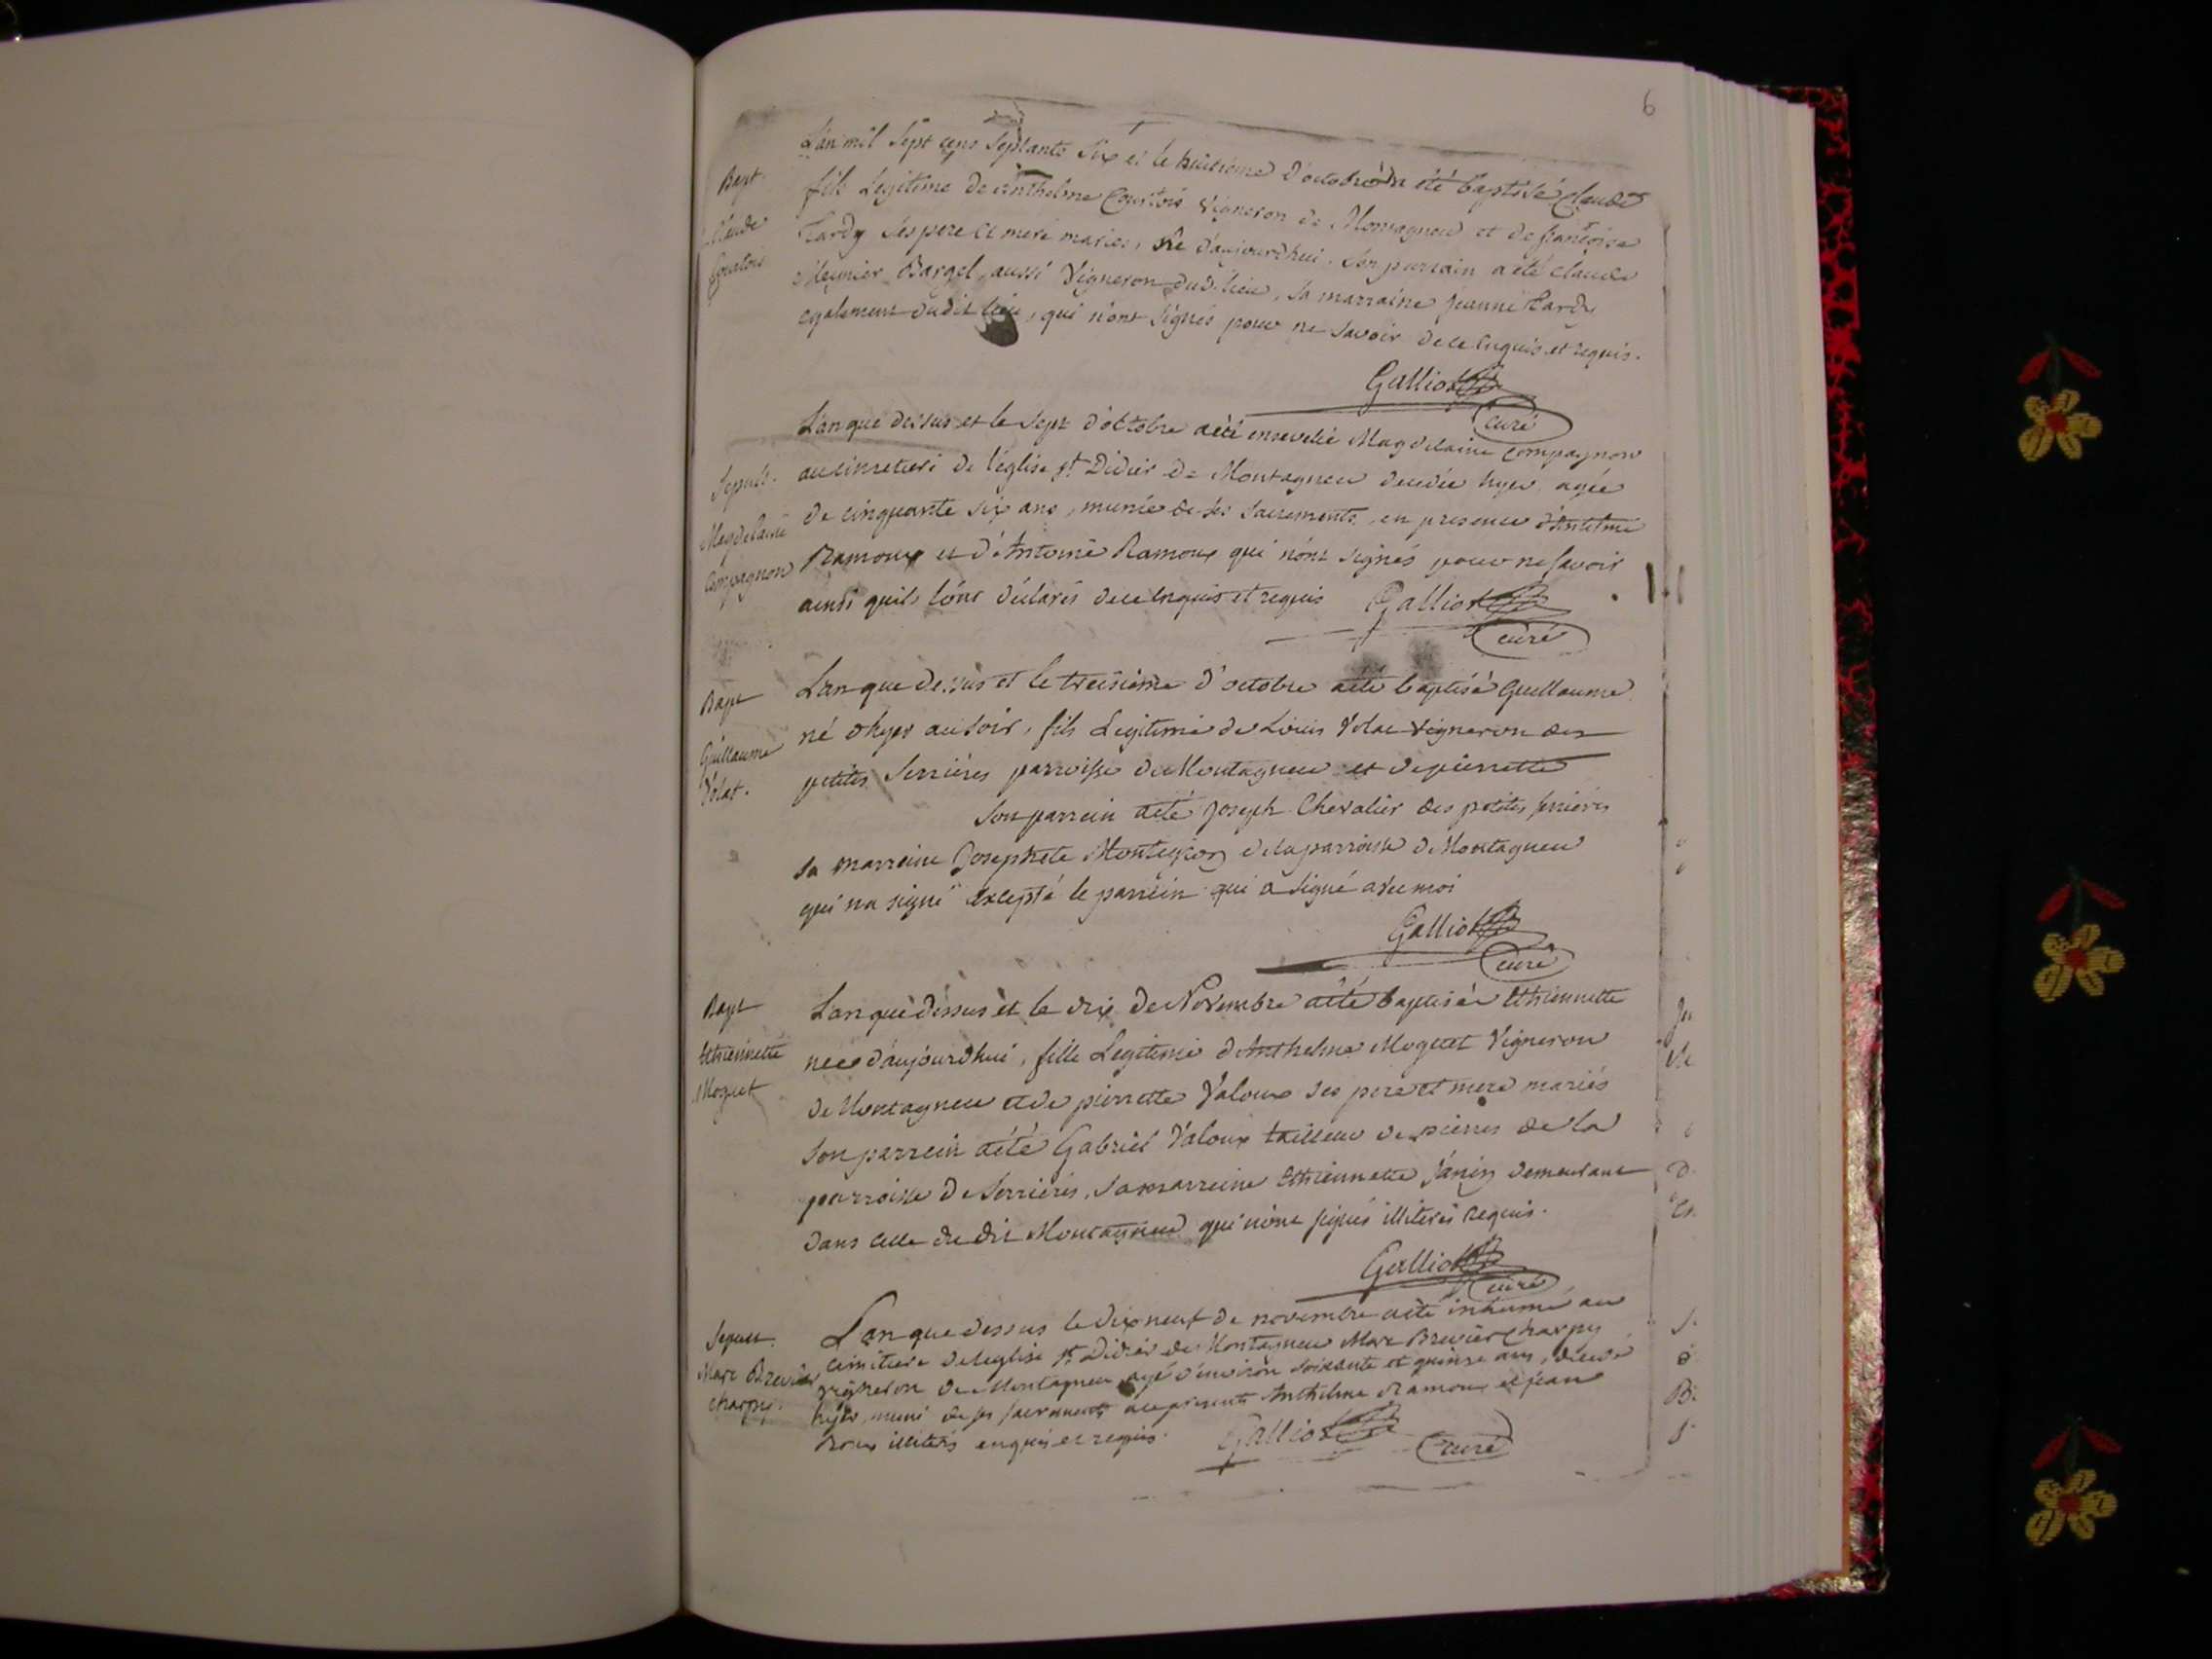 6
L'an mil Sept cens Septante Six et le huitieme d'octobre a été baptisé Claude
Bapt.
fils Legitime de anthelme Courtois Vigneron de Montagneu et de françoise
Claude
Tardy ses pere et mere mariés, né d'aujourdhui. Son parrain a été claude
Courtois
Bargel aussi Vigneron dud. lieu, sa marraine jeanne Tardy
egalement dudit lieu, qui n'ont signés pour ne savoir de ce enquis et requis.
Galliot
curé
L'an que dessus et le sept d'octobre a été ensevelie Magdelaine Compagnon
Sepult.
au cimetiere de l'église st Didier de Montagneu decedée hyer agée
Magdelaine
de cinquante six ans, munie de ses sacrements en presence d'Antelme
Compagnon
Ramoux et d'Antoine Ramoux qui n'ont signés pour ne savoir
ainsi quils l'ont déclarés de ce enquis et requis
Galliot
curé
Bapt
L'an que dessus et le treisieme d'octobre a été baptisé Guillaume
Guillaume
né d'hyer au soir, fils Legitime de Louis Volat vigneron des
Volat.
petites Serrières parroisse de Montagneu et de pierrette
son parrein a été Joseph Chevalier des petites serrières
sa marreine Josephte de la parroisse de Montagneu
qui na signé excepté le parrein qui a signé avec moi
Galliot
curé
Bapt
L'an que dessus et le dix de Novembre a été baptisée Ethiennette
Ethiennette
née d'aujourdhui, fille Legitime d'Anthelme Moguet Vigneron
Moguet
de Montagneu et de pierrette Valoux ses pere et mere mariés
son parrein a été Gabriel Valoux tailleur de pierres de la
parroisse de Serrières, sa marreine Ethiennette Janin demeurant
dans celle du dit Montagneu qui n'ont signés illiterés requis.
Galliot
curé
Sepult.
L'an que dessus le dix neuf de novembre a été inhumé au
Marc Brevier
cimitiere de leglise st Didier de Montagneu Marc Brevier Charpy
charpy.
vigneron de Montagneu agé d'environ soixante et quinse ans, decedé
hyer, muni de ses sacrements Anthelme Ramoux et jean
Roux illiterés enquis et requis.
Galliot
curé